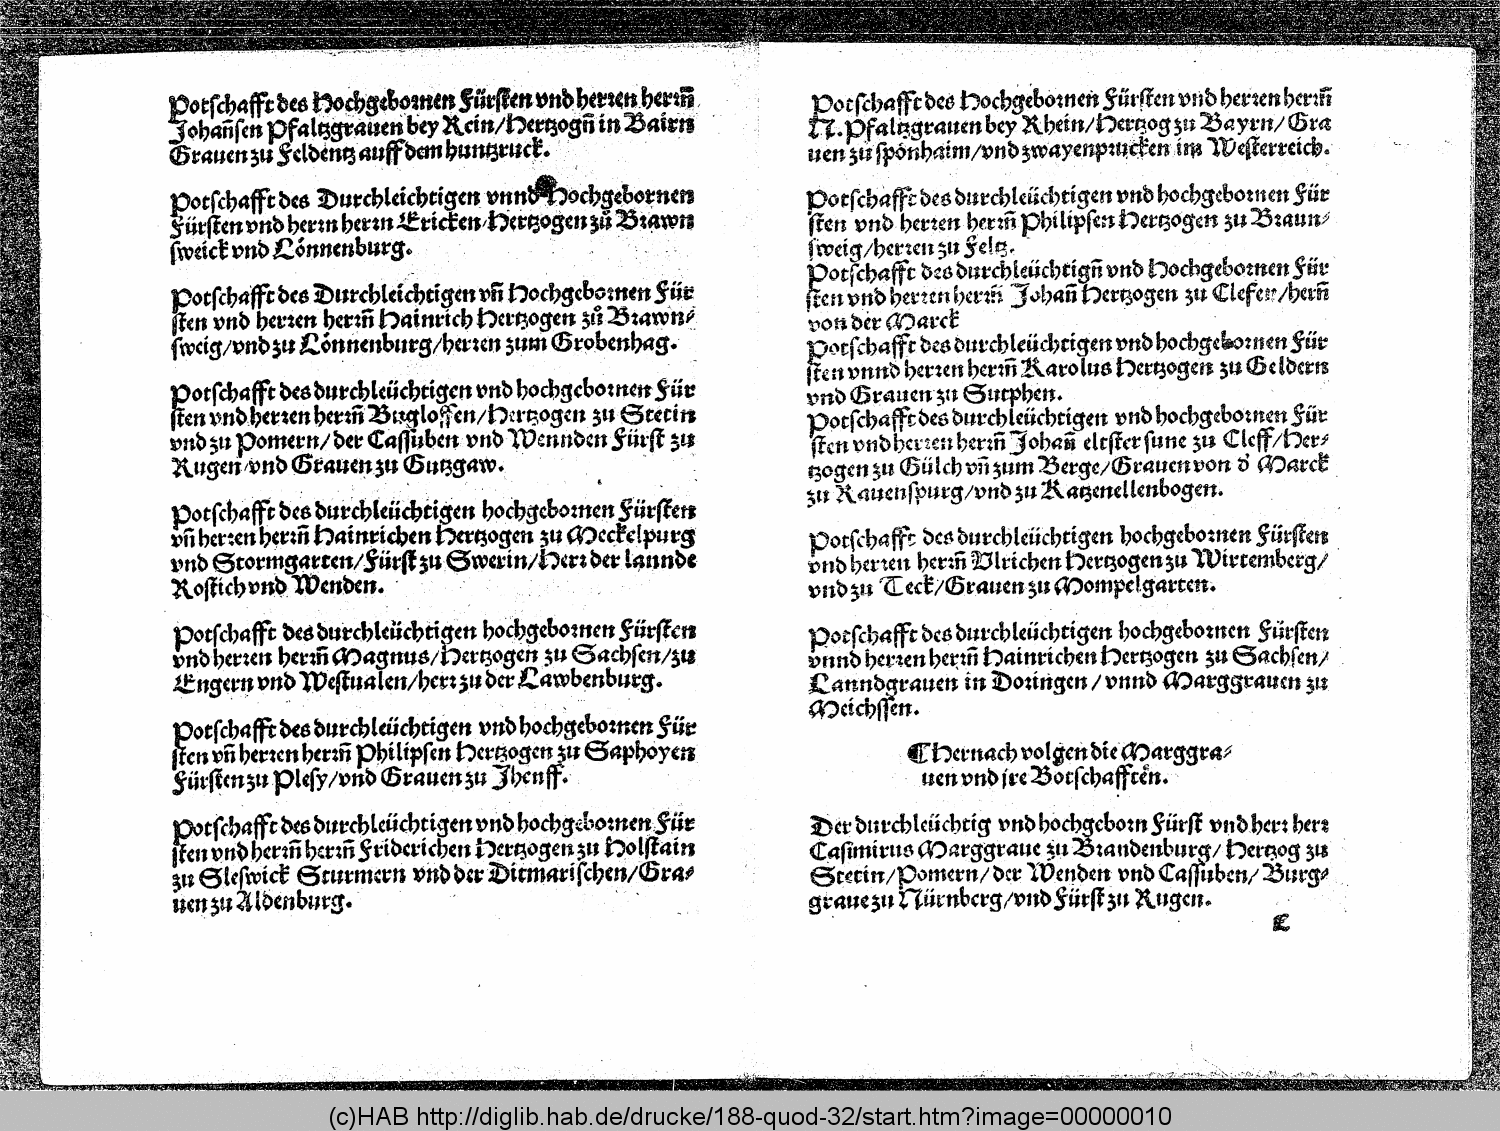 Potſchafft des Hochgebornen Fürſten vnd herren herrñ
Johañſen Pfaltzgrauen bey Rein/Hertzogñ in Bairn
Grauen zu Feldentz auff dem huntzruck.
Potſchafft des Durchleichtigen vnnd Hochgebornen
Fürſten vnd herrn herrn Ericken/Hertzogen zů Brawn
ſweick vnd Lönnenburg.
Potſchafft des Durchleichtigen vñ Hochgebornen Für
ſten vnd herren herrñ Hainrich Hertzogen zů Brawn⸗
ſweig/vnd zu Lönnenburg/herren zum Grobenhag.
Potſchafft des durchleüchtigen vnd hochgebornen Für
ſten vnd herren herrñ Bugloſſen/Hertzogen zu Stetin
vnd zu Pomern/der Caſſuben vnd Wennden Fürſt zu
Rugen/vnd Grauen zu Gutzgaw.
Potſchafft des durchleüchtigen hochgebornen Fürſten
vñ herren herrñ Hainrichen Hertzogen zu Meckelpurg
vnd Stormgarten/Fürſt zu Swerin/Herr der lannde
Roſtich vnd Wenden.
Potſchafft des durchleüchtigen hochgebornen Fürſten
vnd herren herrñ Magnus/Hertzogen zu Sachſen/zu
Engern vnd Weſtualen/herr zu der Lawbenburg.
Potſchafft des durchleüchtigen vnd hochgebornen Für
ſten vñ herren herrñ Philipſen Hertzogen zu Saphoyen
Fürſten zu Pleſy/vnd Grauen zu Jhenff.
Potſchafft des durchleüchtigen vnd hochgebornen Für
ſten vnd herrñ herrñ Friderichen Hertzogen zu Holſtain
zu Sleſwick Sturmern vnd der Ditmariſchen/Gra⸗
uen zu Aldenburg.
Potſchafft des Hochgebornen Fürſten vnd herren herrñ
N. Pfaltzgrauen bey Rhein/Hertzog zu Bayrn/Gra
uen zu ſpönhaim/vnd zwayenprucken im Weſterreich.
Potſchafft des durchleüchtigen vnd hochgebornen Für
ſten vnd herren herrñ Philipſen Hertzogen zu Braun⸗
ſweig/herren zu Feltz.
Potſchafft des durchleüchtigñ vnd Hochgebornen Für
ſten vnd herren herrñ Johañ Hertzogen zu Clefen/herñ
von der Marck
Potſchafft des durchleüchtigen vnd hochgebornen Für
ſten vnnd herren herrñ Karolus Hertzogen zu Geldern
vnd Grauen zu Sutphen.
Potſchafft des durchleüchtigen vnd hochgebornen Für
ſten vnd herren herrñ Johañ eltſter ſune zu Cleff/Her⸗
tzogen zu Gülch vñ zum Berge/Grauen von d' Marck
zu Rauenſpurg/vnd zu Katzenellenbogen.
Potſchafft des durchleüchtigen hochgebornen Fürſten
vnd herren herrñ Vlrichen Hertzogen zu Wirtemberg/
vnd zu Teck/Grauen zu Mompelgarten.
Potſchafft des durchleüchtigen hochgebornen Fürſten
vnnd herren herrñ Hainrichen Hertzogen zu Sachſen/
Lanndgrauen in Doringen/vnnd Marggrauen zu
Meichſſen.
¶ Hernach volgen die Marggra⸗
uen vnd jre Botſchafften.
Der durchleüchtig vnd hochgeborn Fürſt vnd herr herr
Caſimirus Marggraue zu Brandenburg/Hertzog zu
Stetin/Pomern/der Wenden vnd Caſſuben/Burg⸗
graue zu Nürnberg/vnd Fürſt zu Rugen.
C
(c)HAB http://diglib.hab.de/drucke/188-quod-32/start.htm?image=00000010